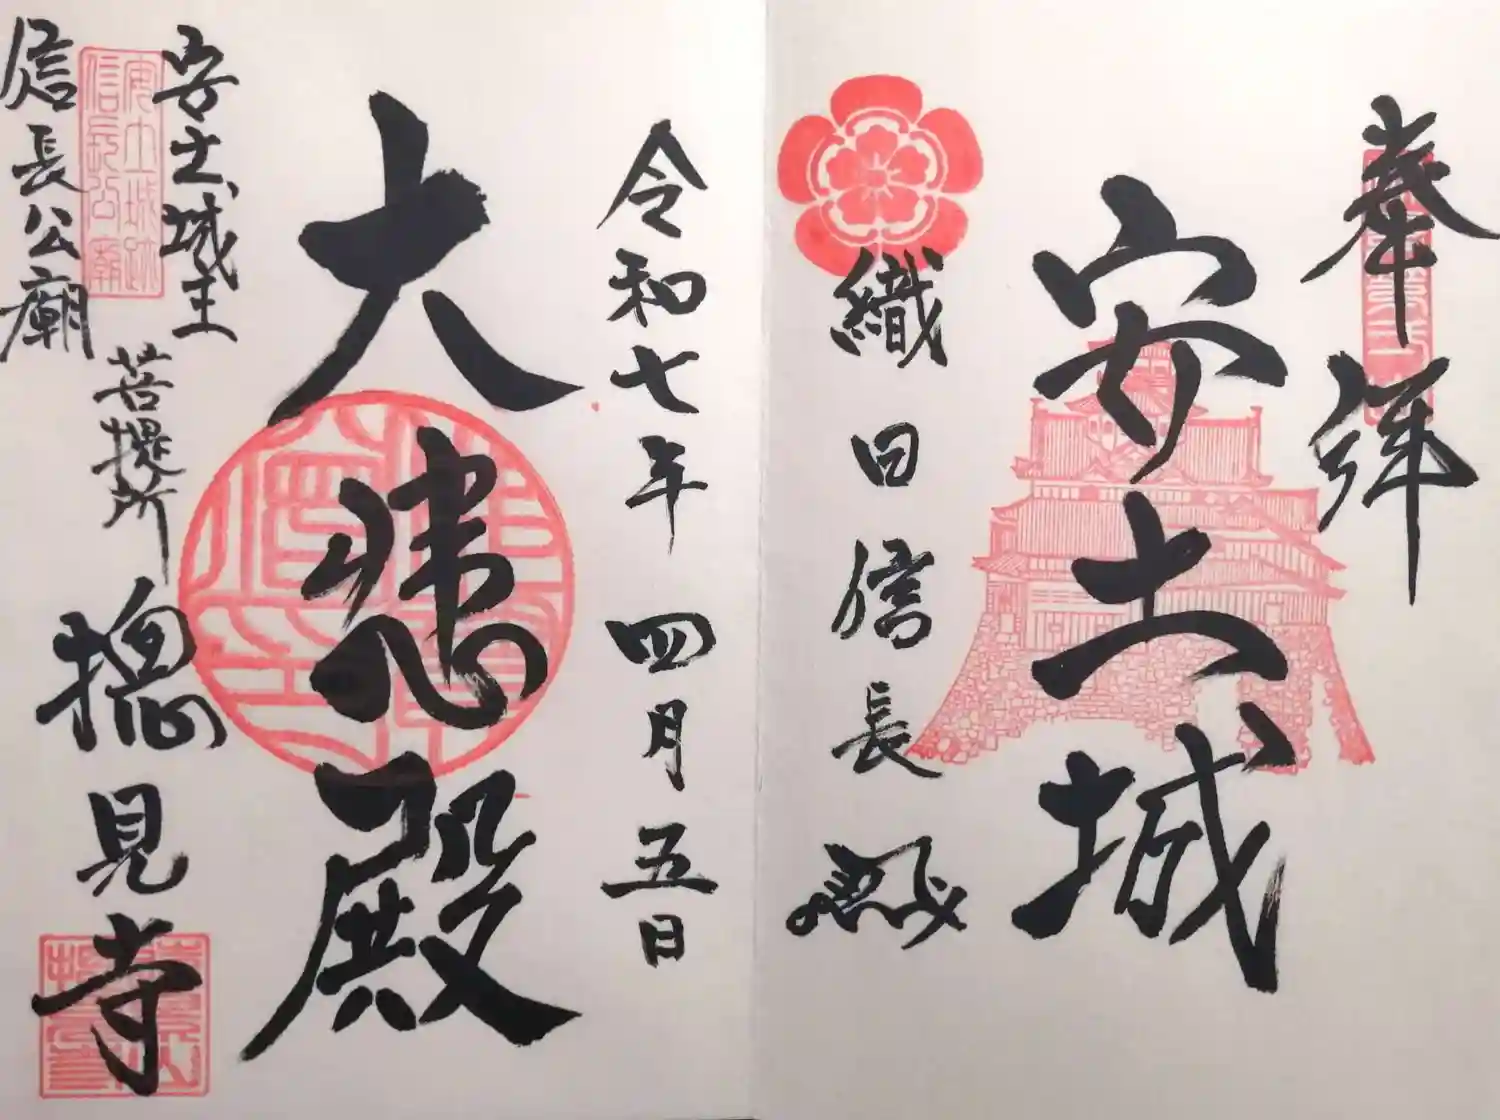 奉拝
安土城
織田信長
令和七年 四月五日
大悲殿
安土城主
信長公廟
菩提所
摠見寺
安土城跡
信長公廟